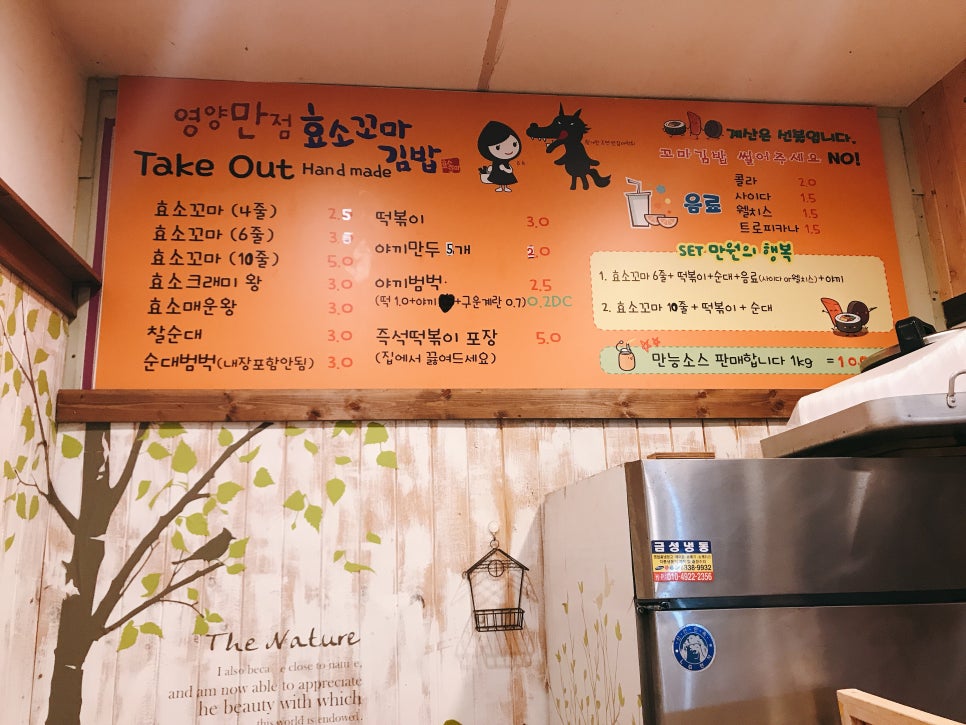 영양만점 효소꼬마
김밥
Take Out Hand made
계산은 선불입니다.
꼬마김밥 썰어주세요 NO!
효소꼬마 (4줄) 2.5
효소꼬마 (6줄) 3.5
효소꼬마 (10줄) 5.0
효소크래미 왕 3.0
효소매운왕 3.0
찰순대 3.0
순대범벅(내장포함안됨) 3.0
떡볶이 3.0
야끼만두 5개 2.0
야끼범벅 2.5
(떡 1.0+야끼 +구운계란 0.7)0.2DC
즉석떡볶이 포장 5.0
(집에서 끓여드세요)
음료
콜라 2.0
사이다 1.5
웰치스 1.5
트로피카나 1.5
SET 만원의 행복
1. 효소꼬마 6줄+ 떡볶이+순대+음료(사이다or웰치스)+야끼
2. 효소꼬마 10줄 + 떡볶이 + 순대
만능소스 판매합니다 1kg =
금성냉동
338-9932
010-4922-2356
The Nature
I also close to
and am now able to appreciate
he beauty with which
this world is endowed.